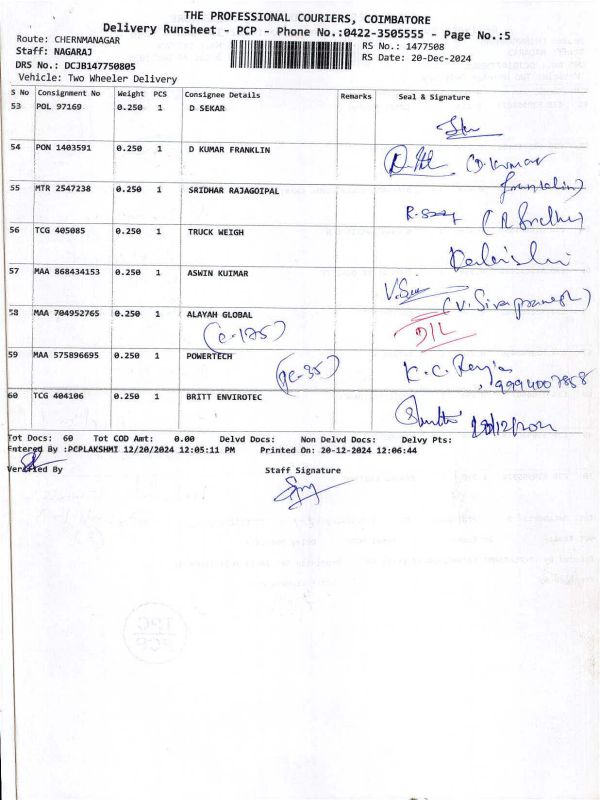 THE PROFESSIONAL COURIERS, COIMBATORE
Delivery Runsheet - PCP - Phone No.:0422-3505555 - Page No.:5
Route: CHERNMANAGAR RS No.: 1477508
Staff: NAGARAJ RS Date: 20-Dec-2024
DRS No.: DCJB147750805
Vehicle: Two Wheeler Delivery
S No Consignment No Weight PCS Consignee Details Remarks Seal & Signature
53 POL 97169 0.250 1 D SEKAR
54 PON 1403591 0.250 1 D KUMAR FRANKLIN (D. Kumar
Franklin)
55 MTR 2547238 0.250 1 SRIDHAR RAJAGOIPAL
56 TCG 405085 0.250 1 TRUCK WEIGH
57 MAA 868434153 0.250 1 ASWIN KUIMAR
58 MAA 704952765 0.250 1 ALAYAH GLOBAL D/L
(C-175)
59 MAA 575896695 0.250 1 POWERTECH K.C.
9994007858
60 TCG 404106 0.250 1 BRITT ENVIROTEC
Tot Docs: 60 Tot COD Amt: 0.00 Delvd Docs: Non Delvd Docs: Delvy Pts:
Entered By :PCPLAKSHMI 12/20/2024 12:05:11 PM Printed On: 20-12-2024 12:06:44
Verified By Staff Signature